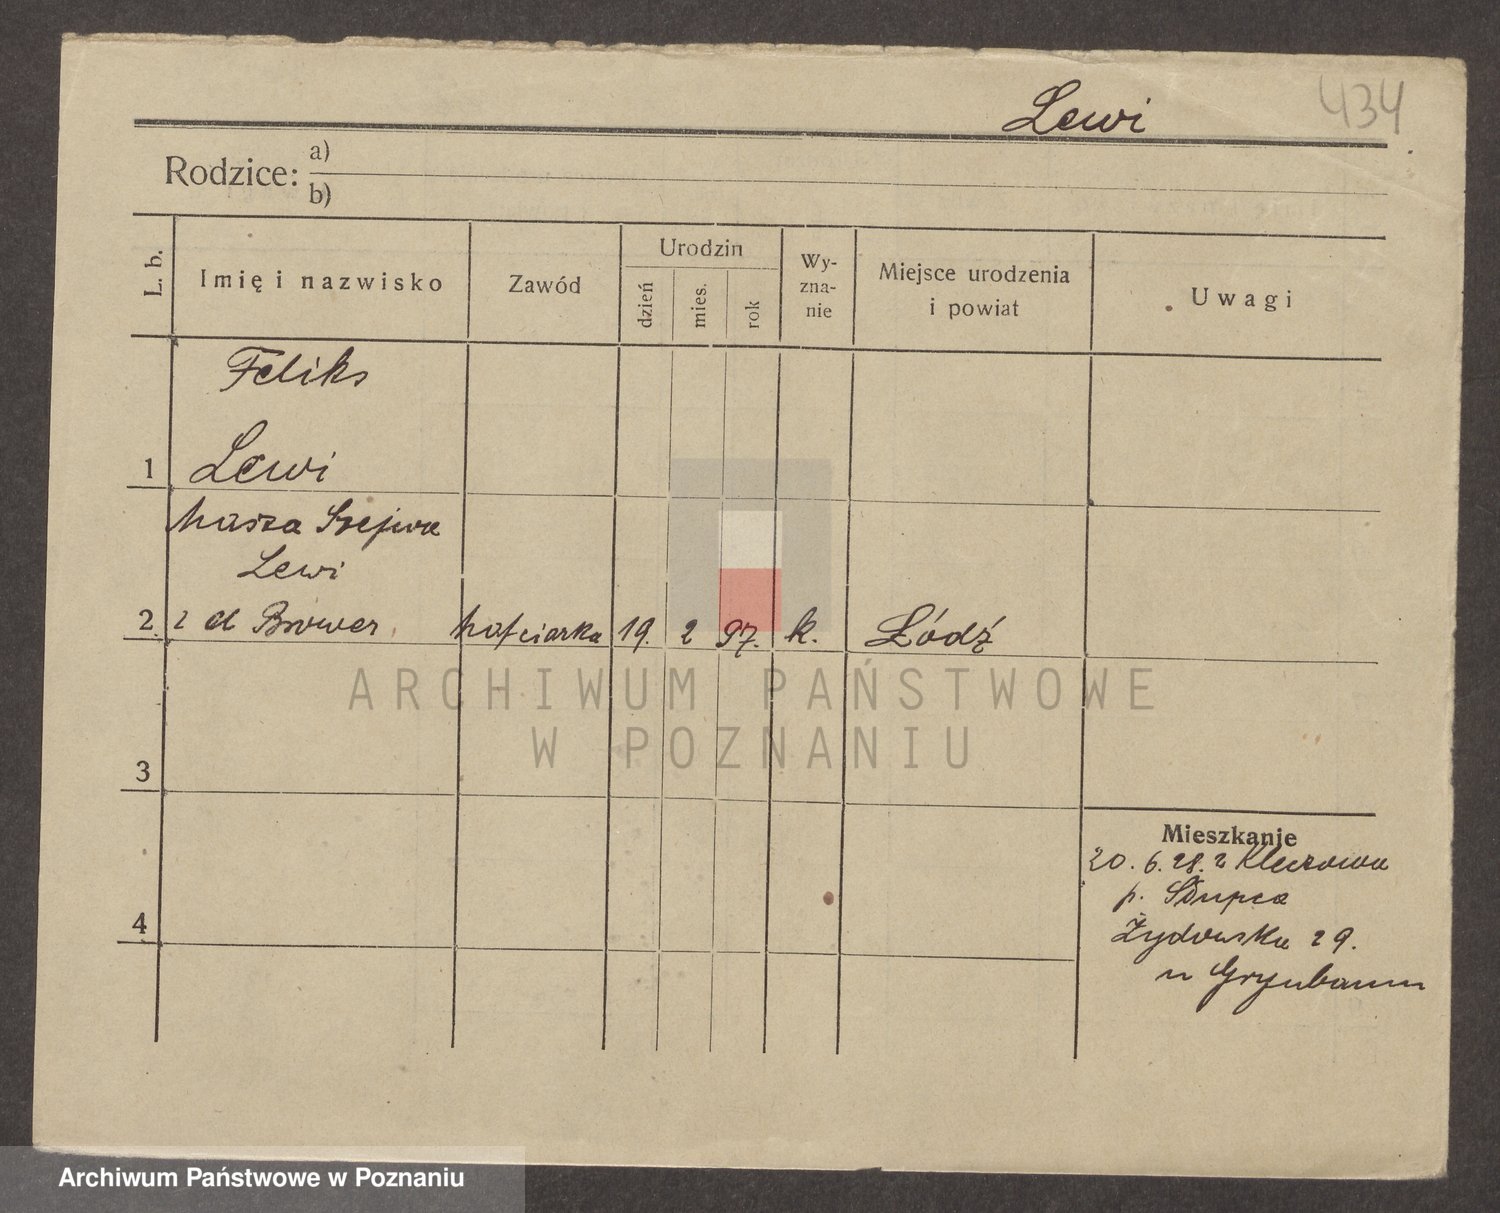 Lewi
434
Rodzice: a)
b)
L. b.
Imię i nazwisko
Zawód
Urodzin
dzień
mies.
rok
Wy-
zna-
nie
Miejsce urodzenia
i powiat
Uwagi
Feliks
1 Lewi
Szejwa
Lewi
2 z d Brower hafciarka 19. 2 97. k. Łódź
3
4
Mieszkanie
20. 6. 28. z Kleczewa
p. Słupca
Żydowska 29.
u Grynbaum
ARCHIWUM PAŃSTWOWE
W POZNANIU
Archiwum Państwowe w Poznaniu